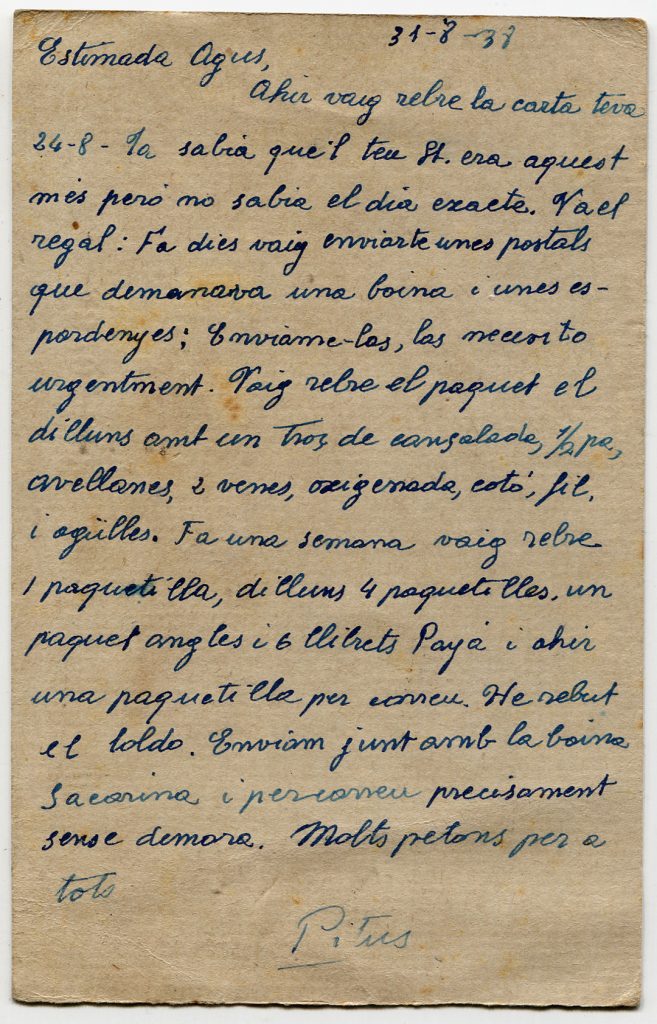 31-8-38
Estimada Agus,
Ahir vaig rebre la carta teva
24-8- Ja sabia que'l teu St. era aquest
més però no sabia el dia exacte. Va el
regal: Fa dies vaig enviarte unes postals
que demanava una boina i unes es-
pardenyes; Enviame-las, las necesito
urgentment. Vaig rebre el paquet el
dilluns amt un troç de cansalada, 1/2 pa,
avellanes, 2 venes, oxigenada, cotó, fil,
i agülles. Fa una semana vaig rebre
1 paquetilla, dilluns 4 paquetilles, un
paquet angles i 6 llibrets Payá i ahir
una paquetilla per correu. He rebut
el toldo. Enviam junt amb la boina
sacarina i per correu precisament
sense demora. Molts petons per a
tots
Pitus